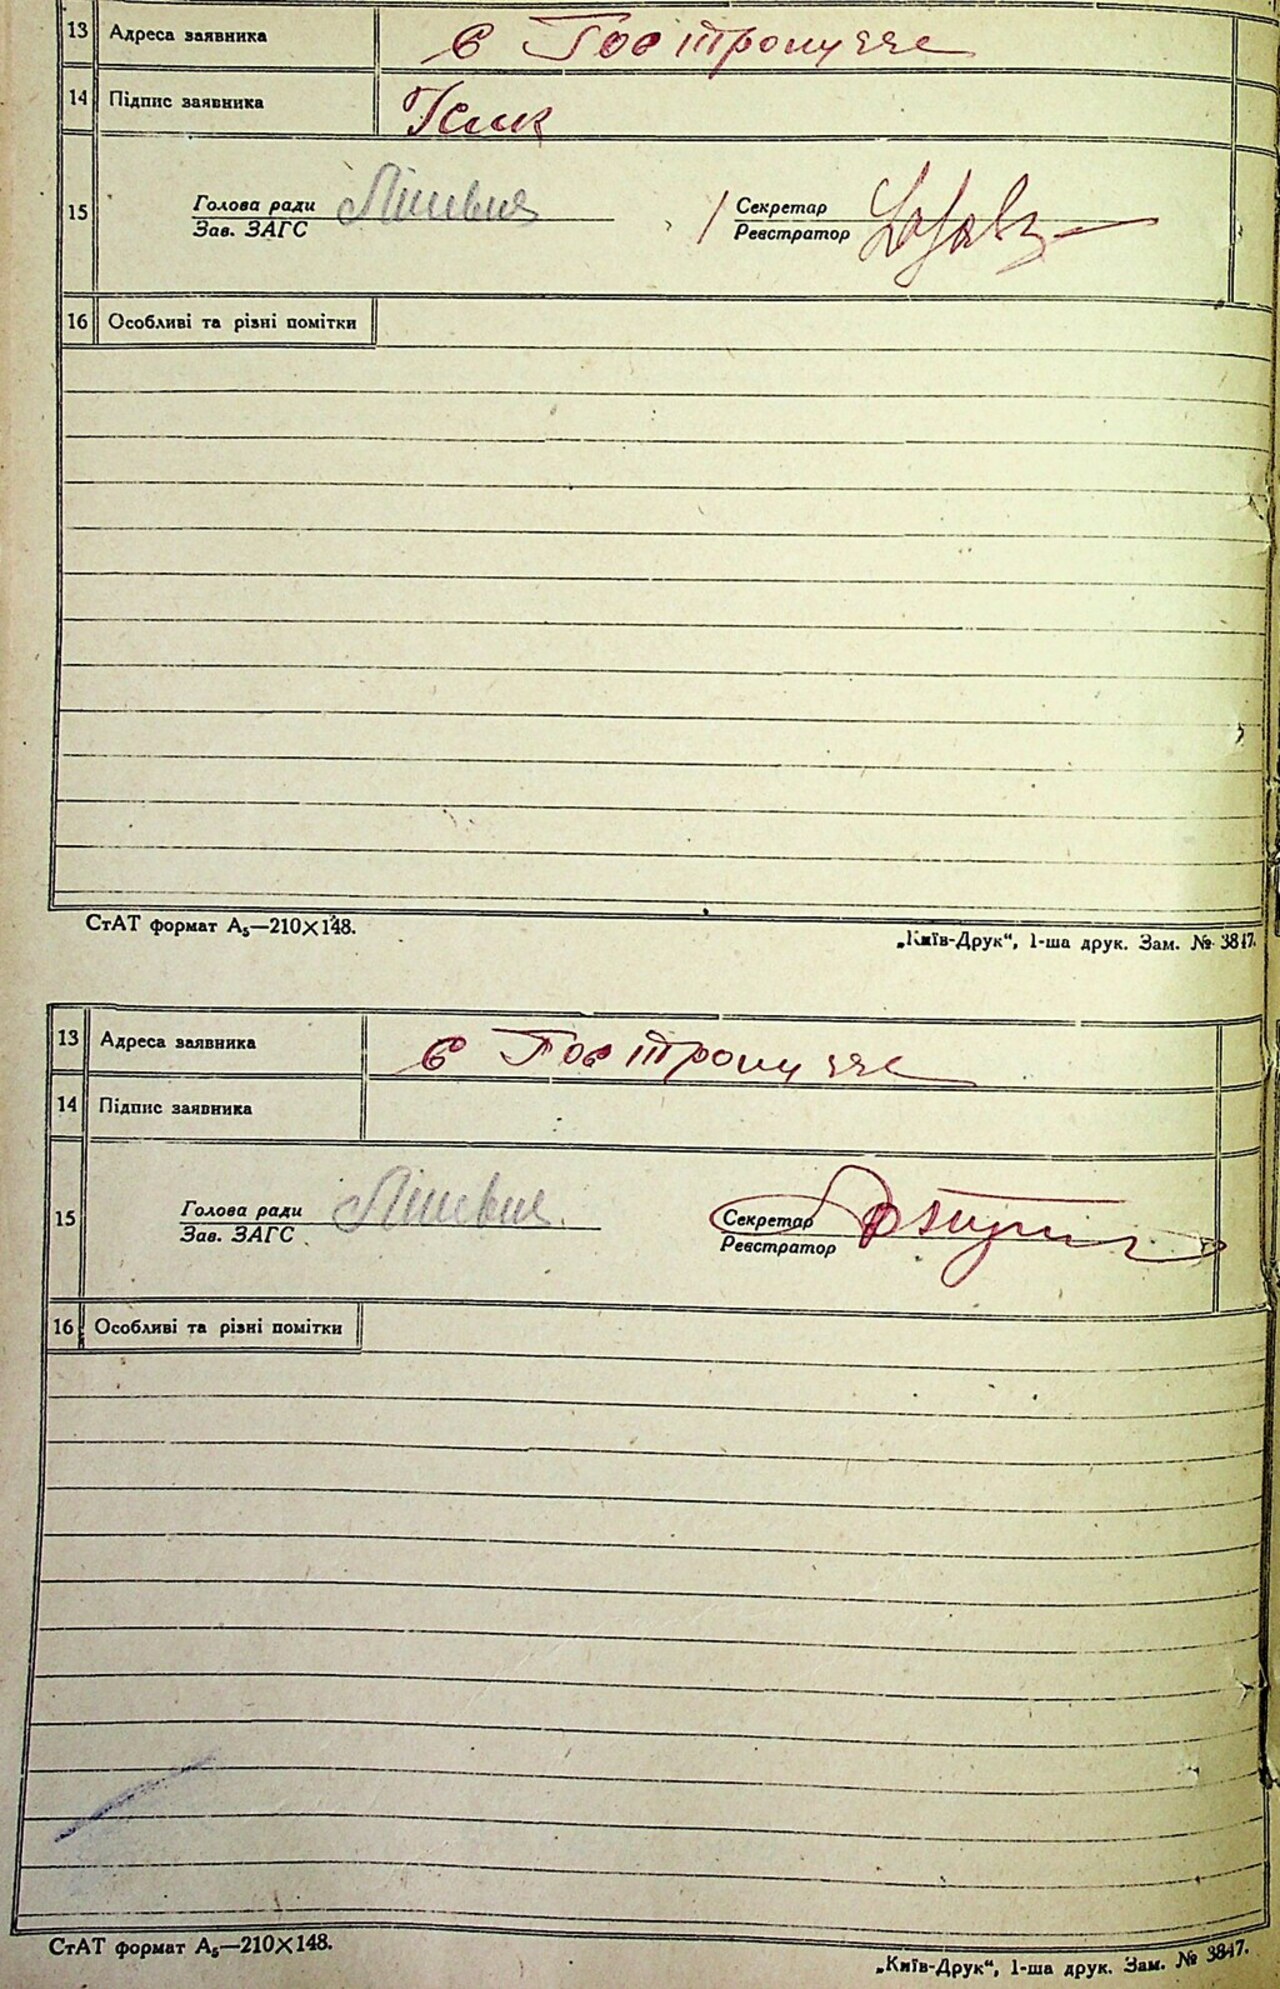 13 Адреса заявника с Гостролуччє
14 Підпис заявника
15 Голова ради Секретар
Зав. ЗАГС Реєстратор
16 Особливі та різні помітки
СтАТ формат А₅—210×148.
„Київ-Друк“, 1-ша друк. Зам. № 3847.
13 Адреса заявника с Гостролуччє
14 Підпис заявника
15 Голова ради Секретар
Зав. ЗАГС Реєстратор
16 Особливі та різні помітки
СтАТ формат А₅—210×148.
„Київ-Друк“, 1-ша друк. Зам. № 3847.